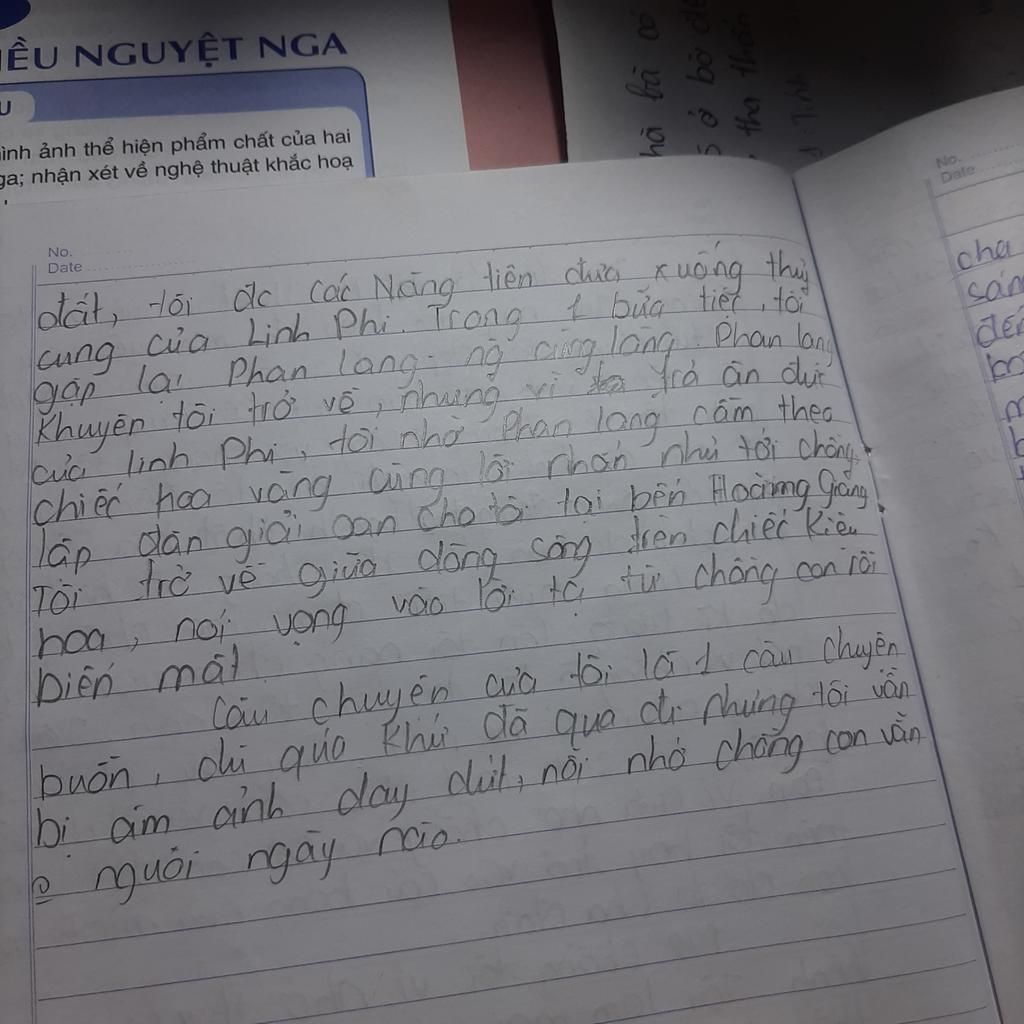 IỀU NGUYỆT NGA
U
ình ảnh thể hiện phẩm chất của hai
ga; nhận xét về nghệ thuật khắc hoạ
hà bà có
ở bờ đê
tha thẩn
No.
Date
đất, tôi đc các Nàng tiên đưa xuống thuỷ
cung của Linh Phi. Trong 1 bữa tiệc, tôi
gặp lại Phan lang - ng cùng làng. Phan lang
khuyên tôi trở về, nhưng vì trả ân đức
của linh Phi, tôi nhờ Phan lang cầm theo
chiếc hoa vàng cùng lời nhắn nhủ tới chồng
lập đàn giải oan cho tôi tại bến Hoàng Giang.
Tôi trở về giữa dòng sông trên chiếc kiệu
hoa, nói vọng vào lời tạ từ chồng con rồi
biến mất.
Câu chuyện của tôi là 1 câu chuyện
buồn, dù quáo khứ đã qua đi nhưng tôi vẫn
bị ám ảnh day dứt, nỗi nhớ chồng con vẫn
ngày nào.
No.
Date
cha